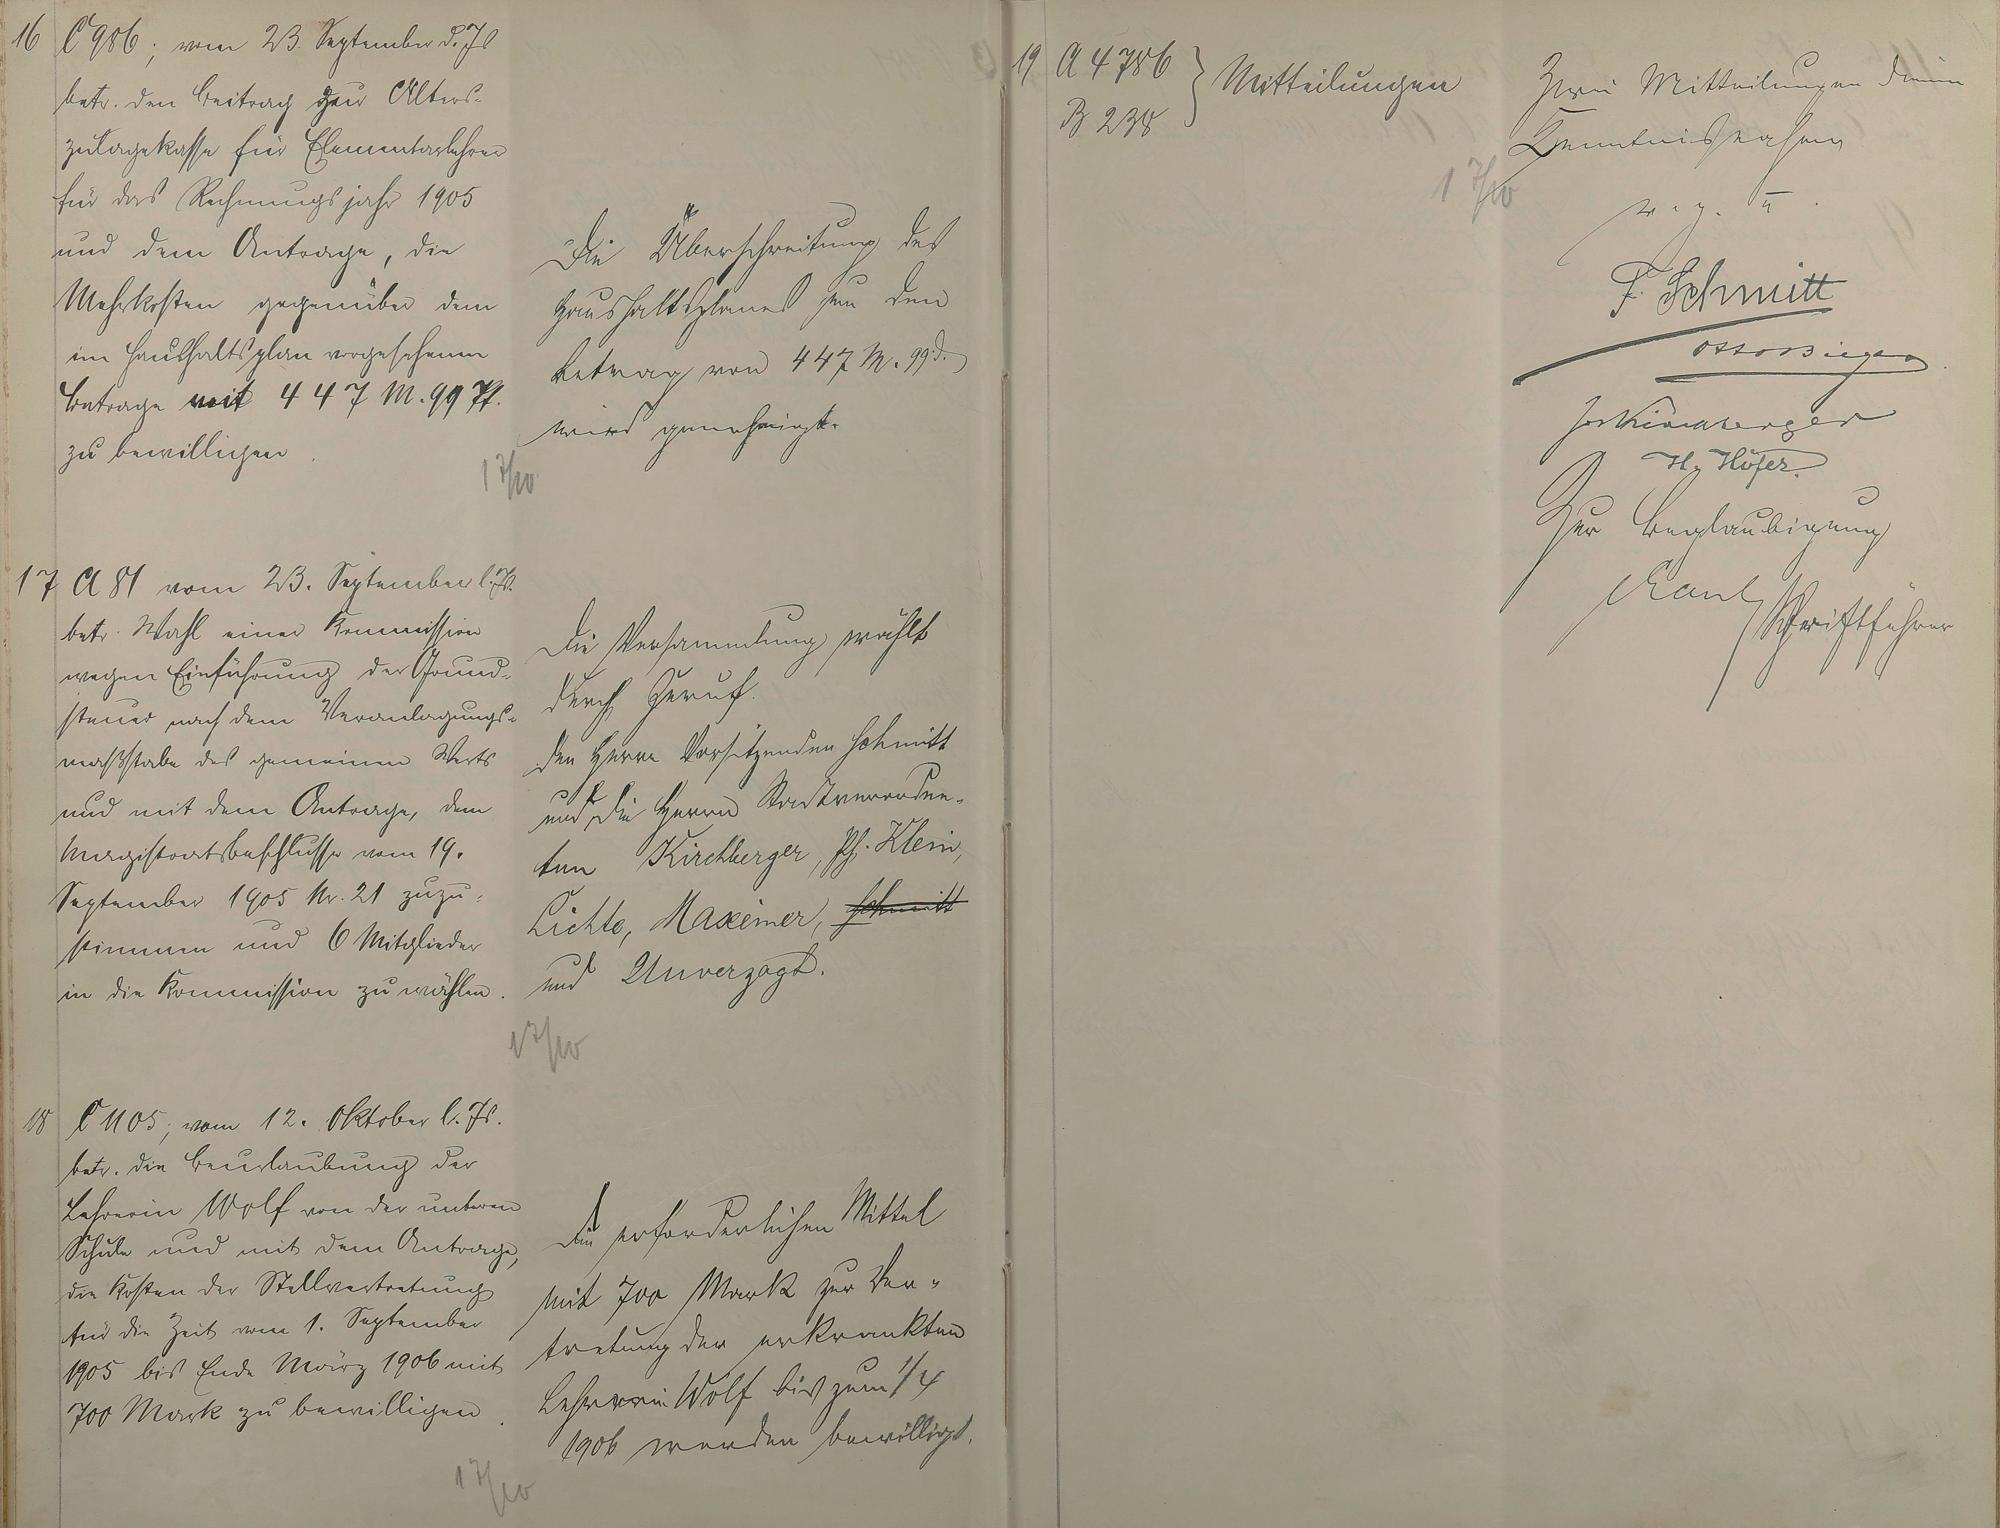 16 C 986; vom 23. September d. Js
betr. den Beitrag zur Alters-
zulagekasse für Elementarlehrer
für das Rechnungsjahr 1905
und dem Antrage, die
Mehrkosten gegenüber dem
im Haushaltsplan vorgesehenen
Betrage mit 447 M. 99 Pf.
zu bewilligen.
Die Überschreitung des
Haushaltsplanes um den
Betrag von 447 M. 99 d.
wird genehmigt.
17/10
17 A 81 vom 23. September l. Js.
betr. Wahl einer Kommission
wegen Einführung der Grund-
steuer nach dem Veranlagungs-
maßstabe des gemeinen Werts
und mit dem Antrage, dem
Magistratsbeschlusse vom 19.
September 1905 Nr. 21 zuzu-
stimmen und 6 Mitglieder
in die Kommission zu wählen.
Die Versammlung wählt
durch Zuruf.
den Herrn Vorsitzenden Schmitt
und die Herrn Stadtverordne-
ten Kirchberger, Ph. Klein,
Lichte, Maxeiner, Schmitt
und Unverzagt.
17/10
18 C 1105; vom 12. Oktober l. Js.
betr. die Beurlaubung der
Lehrerin Wolf von der unteren
Schule und mit dem Antrage,
die Kosten der Stellvertretung
für die Zeit vom 1. September
1905 bis Ende März 1906 mit
700 Mark zu bewilligen.
Die erforderlichen Mittel
mit 700 Mark zur Ver-
tretung der erkrankten
Lehrerin Wolf bis zum 1/4
1906 werden bewilligt.
17/10
19 A 4786
B 238
} Mitteilungen
Zwei Mitteilungen dienen
Kenntnisnahme
17/10
v. g. u.
F. Schmitt
Jos Kirchberger
H. Höfer.
Zur Beglaubigung
Schriftführer